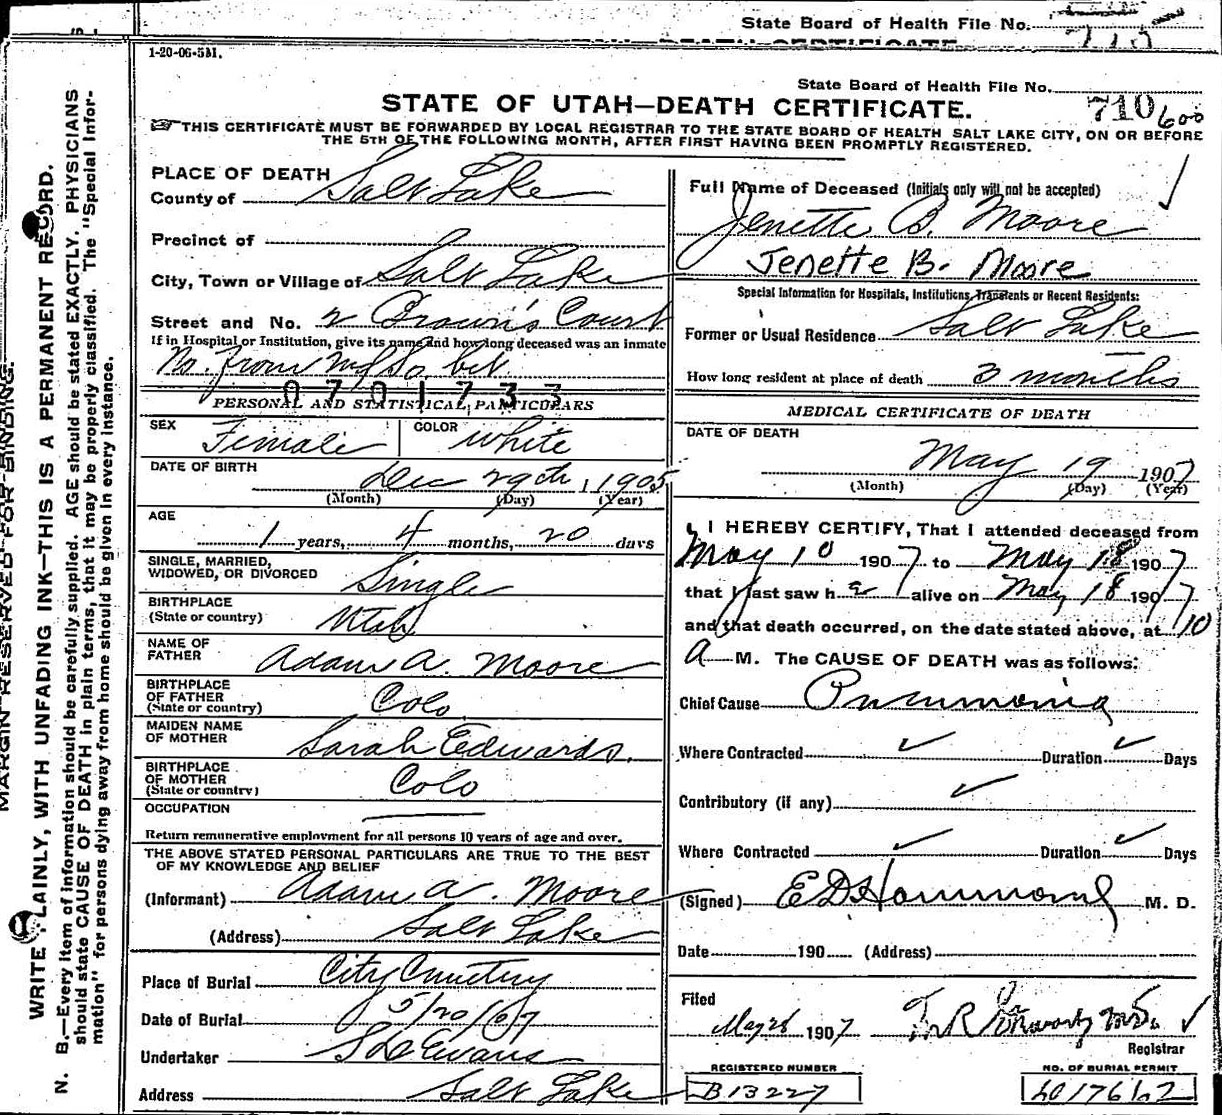 State Board of Health File No.
715
1-20-06-5M.
State Board of Health File No.
710 600
STATE OF UTAH—DEATH CERTIFICATE.
THIS CERTIFICATE MUST BE FORWARDED BY LOCAL REGISTRAR TO THE STATE BOARD OF HEALTH SALT LAKE CITY, ON OR BEFORE
THE 5TH OF THE FOLLOWING MONTH, AFTER FIRST HAVING BEEN PROMPTLY REGISTERED.
MARGIN RESERVED FOR BINDING.
WRITE PLAINLY, WITH UNFADING INK—THIS IS A PERMANENT RECORD.
N. B.—Every item of information should be carefully supplied. AGE should be stated EXACTLY. PHYSICIANS
should state CAUSE OF DEATH in plain terms, that it may be properly classified. The "Special Infor-
mation" for persons dying away from home should be given in every instance.
PLACE OF DEATH
County of Salt Lake
Precinct of
City, Town or Village of Salt Lake
Street and No. 2 Brown's Court
If in Hospital or Institution, give its name and how long deceased was an inmate
No. From bet.
0701733
PERSONAL AND STATISTICAL PARTICULARS
SEX Female COLOR White
DATE OF BIRTH
Dec 29th, 1905
(Month) (Day) (Year)
AGE
1 years, 4 months, 20 days
SINGLE, MARRIED,
WIDOWED, OR DIVORCED Single
BIRTHPLACE
(State or country) Utah
NAME OF
FATHER Adam A. Moore
BIRTHPLACE
OF FATHER
(State or country) Colo
MAIDEN NAME
OF MOTHER Sarah Edwards.
BIRTHPLACE
OF MOTHER
(State or country) Colo
OCCUPATION
Return remunerative employment for all persons 10 years of age and over.
THE ABOVE STATED PERSONAL PARTICULARS ARE TRUE TO THE BEST
OF MY KNOWLEDGE AND BELIEF
(Informant) Adam A. Moore
(Address) Salt Lake
Place of Burial City Cemetery
Date of Burial 5/20/07
Undertaker S D Evans
Address Salt Lake
Full Name of Deceased (Initials only will not be accepted)
Jenette B. Moore
Jenette B. Moore
Special Information for Hospitals, Institutions, Transients or Recent Residents:
Former or Usual Residence Salt Lake
How long resident at place of death 3 months
MEDICAL CERTIFICATE OF DEATH
DATE OF DEATH
May 19 1907
(Month) (Day) (Year)
I HEREBY CERTIFY, That I attended deceased from
May 10 1907 to May 18 1907
that I last saw h alive on May 18 1907
and that death occurred, on the date stated above, at 10
A M. The CAUSE OF DEATH was as follows:
Chief Cause Pneumonia
Where Contracted Duration Days
Contributory (if any)
Where Contracted Duration Days
(Signed) E D Hammond M. D.
Date 190 (Address)
Filed
May 28 1907
Registrar
REGISTERED NUMBER
B13227
NO. OF BURIAL PERMIT